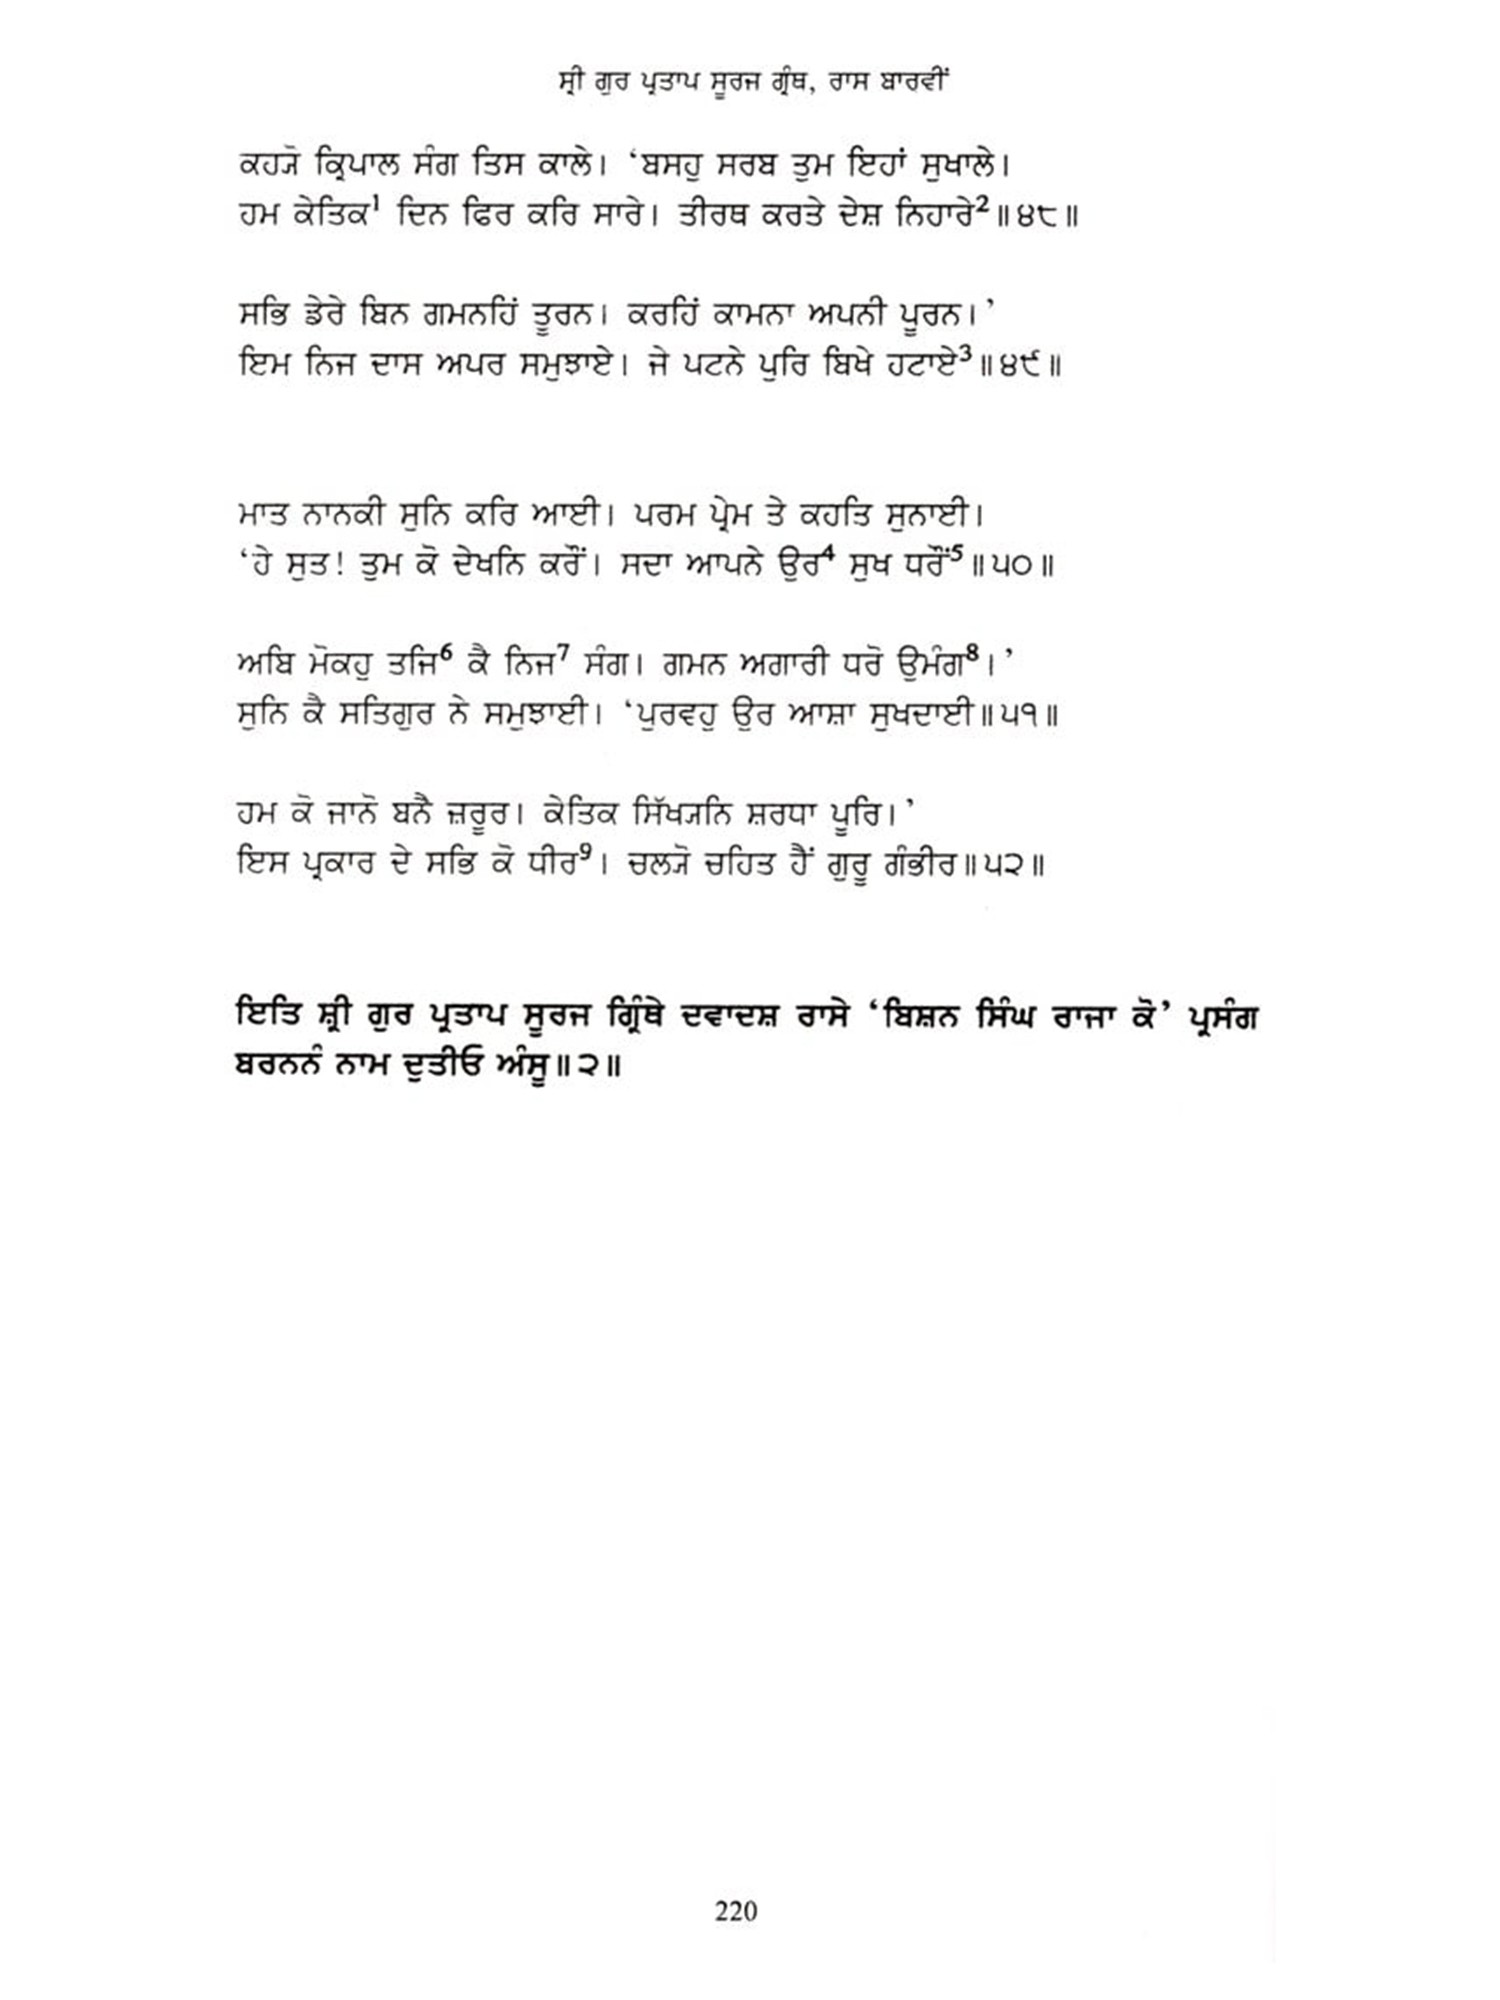 ਸ੍ਰੀ ਗੁਰ ਪ੍ਰਤਾਪ ਸੂਰਜ ਗ੍ਰੰਥ, ਰਾਸ ਬਾਰਵੀਂ
ਕਹ੍ਯੋ ਕ੍ਰਿਪਾਲ ਸੰਗ ਤਿਸ ਕਾਲੇ। ‘ਬਸਹੁ ਸਰਬ ਤੁਮ ਇਹਾਂ ਸੁਖਾਲੇ।
ਹਮ ਕੇਤਿਕ¹ ਦਿਨ ਫਿਰ ਕਰਿ ਸਾਰੇ। ਤੀਰਥ ਕਰਤੇ ਦੇਸ਼ ਨਿਹਾਰੇ²॥੪੮॥
ਸਭਿ ਡੇਰੇ ਬਿਨ ਗਮਨਹਿਂ ਤੂਰਨ। ਕਰਹਿਂ ਕਾਮਨਾ ਅਪਨੀ ਪੂਰਨ।’
ਇਮ ਨਿਜ ਦਾਸ ਅਪਰ ਸਮੁਝਾਏ। ਜੇ ਪਟਨੇ ਪੁਰਿ ਬਿਖੇ ਹਟਾਏ³॥੪੯॥
ਮਾਤ ਨਾਨਕੀ ਸੁਨਿ ਕਰਿ ਆਈ। ਪਰਮ ਪ੍ਰੇਮ ਤੇ ਕਹਤਿ ਸੁਨਾਈ।
‘ਹੇ ਸੁਤ! ਤੁਮ ਕੋ ਦੇਖਨਿ ਕਰੌਂ। ਸਦਾ ਆਪਨੇ ਉਰ⁴ ਸੁਖ ਧਰੌਂ⁵॥੫੦॥
ਅਬਿ ਮੋਕਹੁ ਤਜਿ⁶ ਕੈ ਨਿਜ⁷ ਸੰਗ। ਗਮਨ ਅਗਾਰੀ ਧਰੋ ਉਮੰਗ⁸।’
ਸੁਨਿ ਕੈ ਸਤਿਗੁਰ ਨੇ ਸਮੁਝਾਈ। ‘ਪੁਰਵਹੁ ਉਰ ਆਸ਼ਾ ਸੁਖਦਾਈ॥੫੧॥
ਹਮ ਕੋ ਜਾਨੋ ਬਨੈ ਜ਼ਰੂਰ। ਕੇਤਿਕ ਸਿੱਖ੍ਯਨਿ ਸ਼ਰਧਾ ਪੂਰਿ।’
ਇਸ ਪ੍ਰਕਾਰ ਦੇ ਸਭਿ ਕੋ ਧੀਰ⁹। ਚਲ੍ਯੋ ਚਹਿਤ ਹੈਂ ਗੁਰੂ ਗੰਭੀਰ॥੫੨॥
ਇਤਿ ਸ਼੍ਰੀ ਗੁਰ ਪ੍ਰਤਾਪ ਸੂਰਜ ਗ੍ਰਿੰਥੇ ਦਵਾਦਸ਼ ਰਾਸੇ ‘ਬਿਸ਼ਨ ਸਿੰਘ ਰਾਜਾ ਕੋ’ ਪ੍ਰਸੰਗ
ਬਰਨਨੰ ਨਾਮ ਦੁਤੀਓ ਅੰਸੂ॥੨॥
220